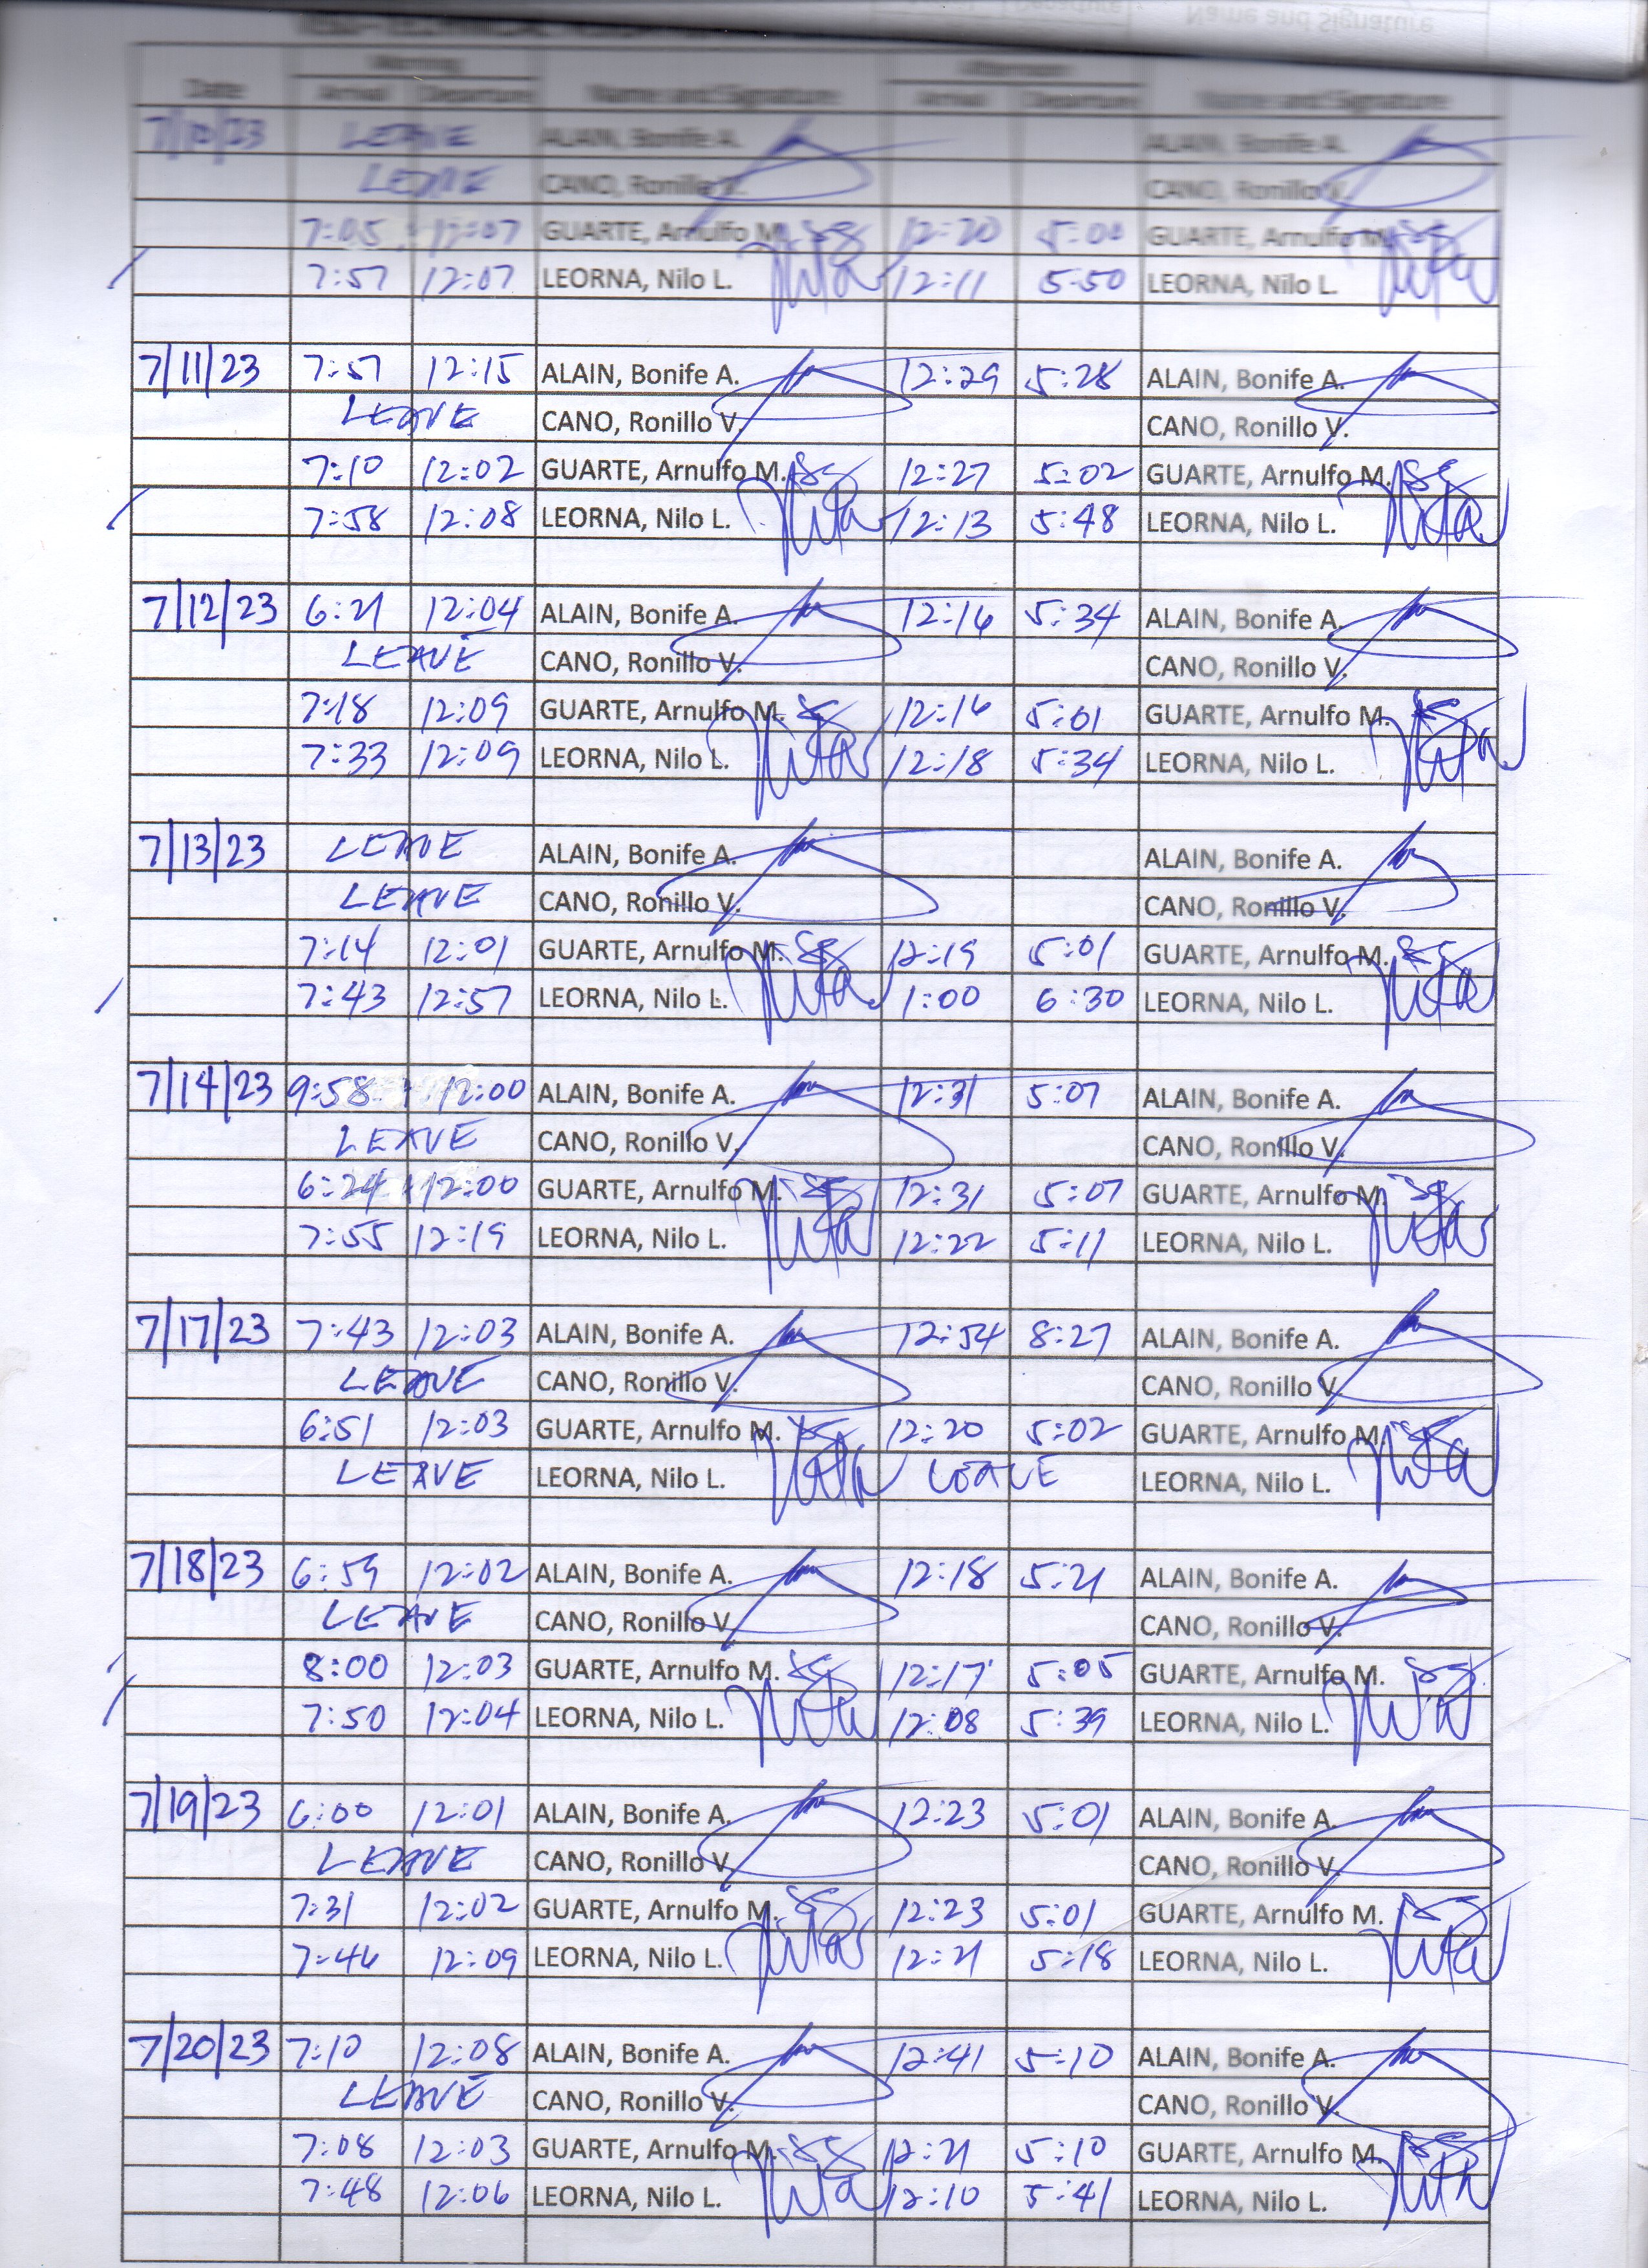 Name and Signature
Departure
Morning Afternoon
Date Arrival Departure Name and Signature Arrival Departure Name and Signature
7/10/23 LEAVE ALAIN, Bonife A. ALAIN, Bonife A.
LEAVE CANO, Ronillo V. CANO, Ronillo V.
7:05 12:07 GUARTE, Arnulfo M. 12:20 5:00 GUARTE, Arnulfo M.
7:57 12:07 LEORNA, Nilo L. 12:11 5:50 LEORNA, Nilo L.
7/11/23 7:57 12:15 ALAIN, Bonife A. 12:29 5:28 ALAIN, Bonife A.
LEAVE CANO, Ronillo V. CANO, Ronillo V.
7:10 12:02 GUARTE, Arnulfo M. 12:27 5:02 GUARTE, Arnulfo M.
7:58 12:08 LEORNA, Nilo L. 12:13 5:48 LEORNA, Nilo L.
7/12/23 6:21 12:04 ALAIN, Bonife A. 12:16 5:34 ALAIN, Bonife A.
LEAVE CANO, Ronillo V. CANO, Ronillo V.
7:18 12:09 GUARTE, Arnulfo M. 12:16 5:01 GUARTE, Arnulfo M.
7:33 12:09 LEORNA, Nilo L. 12:18 5:34 LEORNA, Nilo L.
7/13/23 LEAVE ALAIN, Bonife A. ALAIN, Bonife A.
LEAVE CANO, Ronillo V. CANO, Ronillo V.
7:14 12:01 GUARTE, Arnulfo M. 12:19 5:01 GUARTE, Arnulfo M.
7:43 12:57 LEORNA, Nilo L. 1:00 6:30 LEORNA, Nilo L.
7/14/23 9:58 12:00 ALAIN, Bonife A. 12:31 5:07 ALAIN, Bonife A.
LEAVE CANO, Ronillo V. CANO, Ronillo V.
6:24 12:00 GUARTE, Arnulfo M. 12:31 5:07 GUARTE, Arnulfo M.
7:55 12:19 LEORNA, Nilo L. 12:22 5:11 LEORNA, Nilo L.
7/17/23 7:43 12:03 ALAIN, Bonife A. 12:54 8:27 ALAIN, Bonife A.
LEAVE CANO, Ronillo V. CANO, Ronillo V.
6:51 12:03 GUARTE, Arnulfo M. 12:20 5:02 GUARTE, Arnulfo M.
LEAVE LEORNA, Nilo L. LEAVE LEORNA, Nilo L.
7/18/23 6:59 12:02 ALAIN, Bonife A. 12:18 5:21 ALAIN, Bonife A.
LEAVE CANO, Ronillo V. CANO, Ronillo V.
8:00 12:03 GUARTE, Arnulfo M. 12:17 5:05 GUARTE, Arnulfo M.
7:50 12:04 LEORNA, Nilo L. 12:08 5:39 LEORNA, Nilo L.
7/19/23 6:00 12:01 ALAIN, Bonife A. 12:23 5:01 ALAIN, Bonife A.
LEAVE CANO, Ronillo V. CANO, Ronillo V.
7:31 12:02 GUARTE, Arnulfo M. 12:23 5:01 GUARTE, Arnulfo M.
7:46 12:09 LEORNA, Nilo L. 12:21 5:18 LEORNA, Nilo L.
7/20/23 7:10 12:08 ALAIN, Bonife A. 12:41 5:10 ALAIN, Bonife A.
LEAVE CANO, Ronillo V. CANO, Ronillo V.
7:08 12:03 GUARTE, Arnulfo M. 12:21 5:10 GUARTE, Arnulfo M.
7:48 12:06 LEORNA, Nilo L. 12:10 5:41 LEORNA, Nilo L.